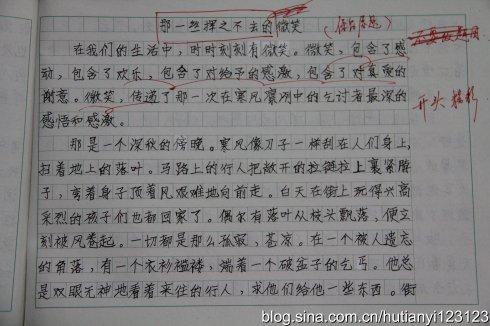 那一丝挥之不去的微笑
(偏离题)
在我们的生活中,时时刻刻有微笑。微笑,包含了感
动,包含了欢乐,包含了对给予的感激,包含了对真爱的
谢意。微笑,传递了那一次在寒风凛冽中的乞讨者最深的
感悟和感激。
开头精彩
那是一个深秋的傍晚。寒风像刀子一样刮在人们身上,
扫着地上的落叶。马路上的行人把敞开的拉链拉上裹紧脖
子,弯着身子顶着风艰难地向前走。白天在街上玩得兴高
采烈的孩子们也都回家了。偶尔有落叶从枝头飘落,便立
刻被风卷起。一切都是那么孤寂,甚凉。在一个被人遗忘
的角落,有一个衣衫褴褛,端着一个破盆子的乞丐。他总
是双眼无神地看着来往的行人,求他们给他一些东西。街
blog.sina.com.cn/hutianyi123123